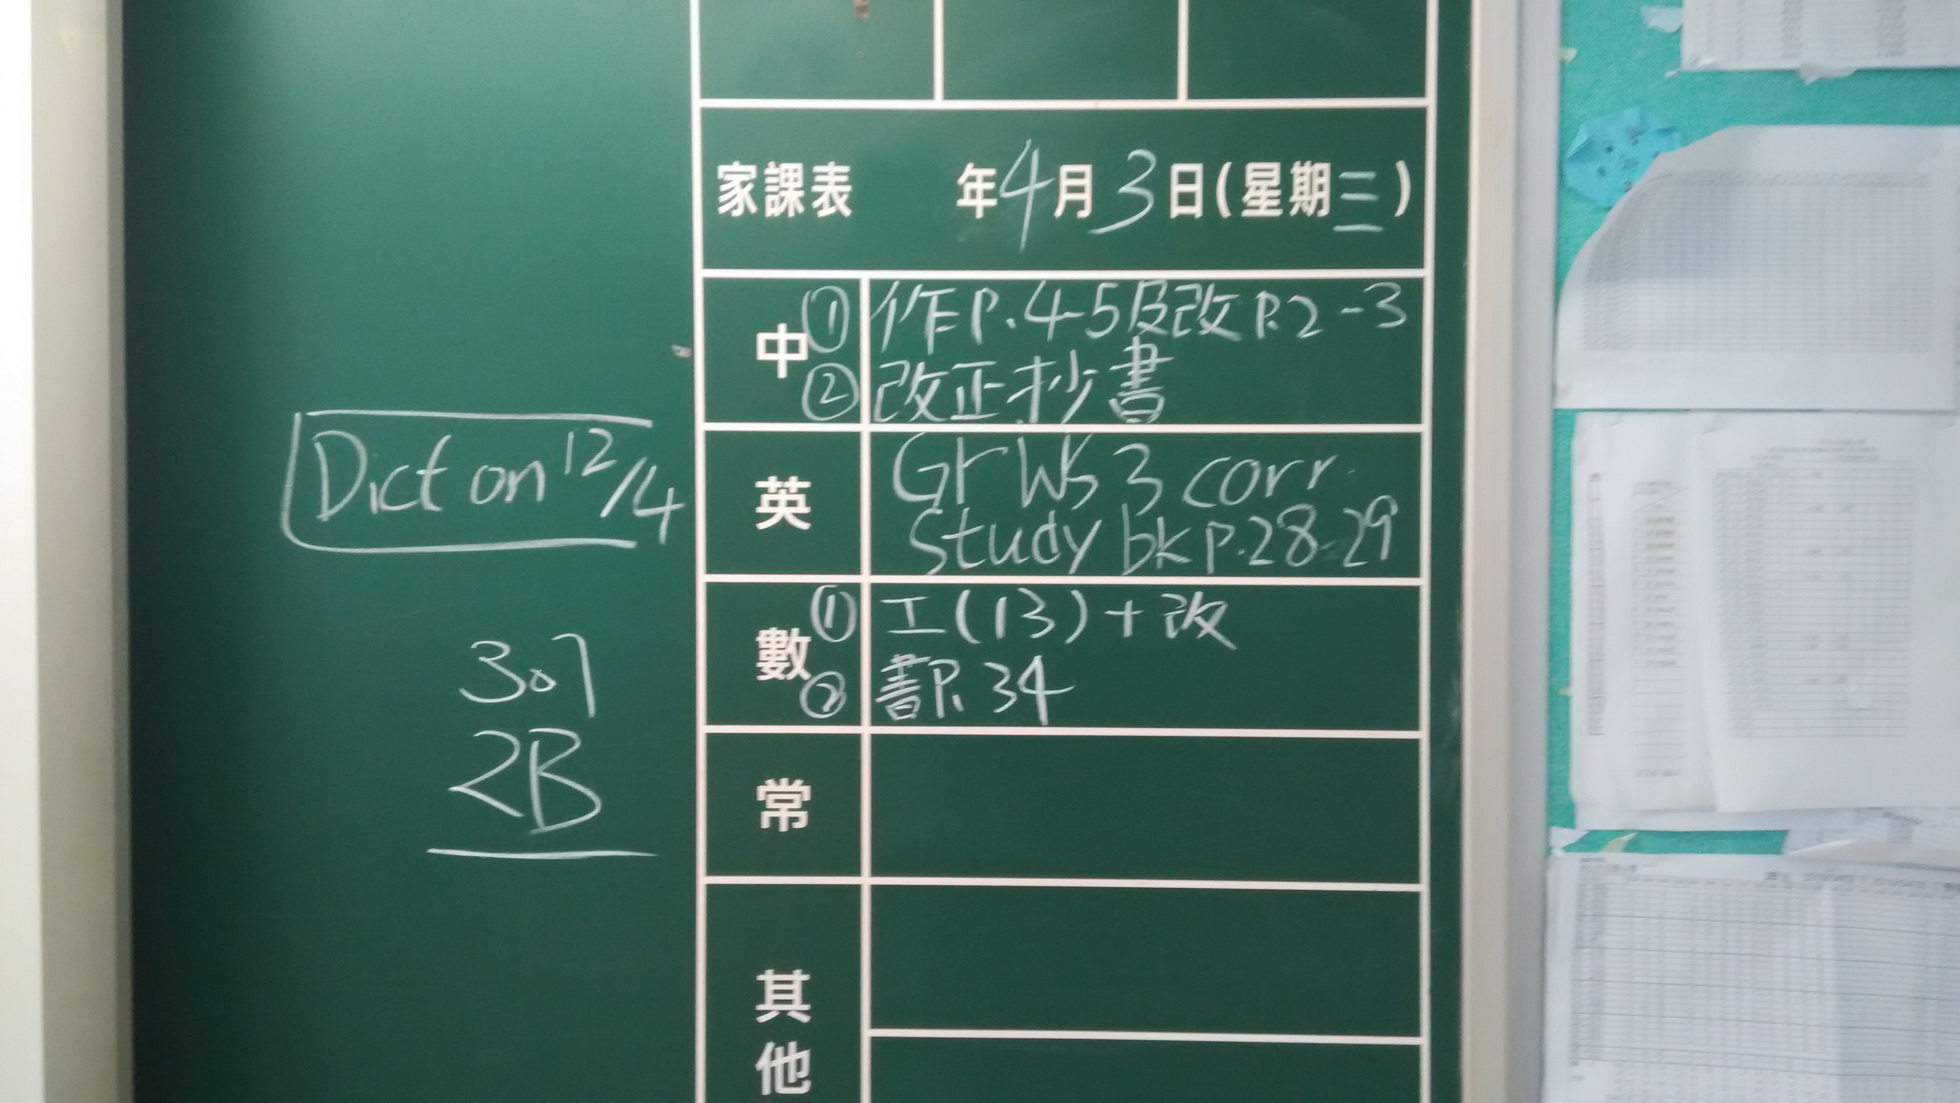 家課表 年4月3日(星期三)
中 ① 作P.4-5及改P.2-3
② 改正抄書
英 Gr WS 3 corr.
Study bk p.28-29
數 ① 工(13)+改
② 書P.34
常
其他
Dict on 12/4
307
2B